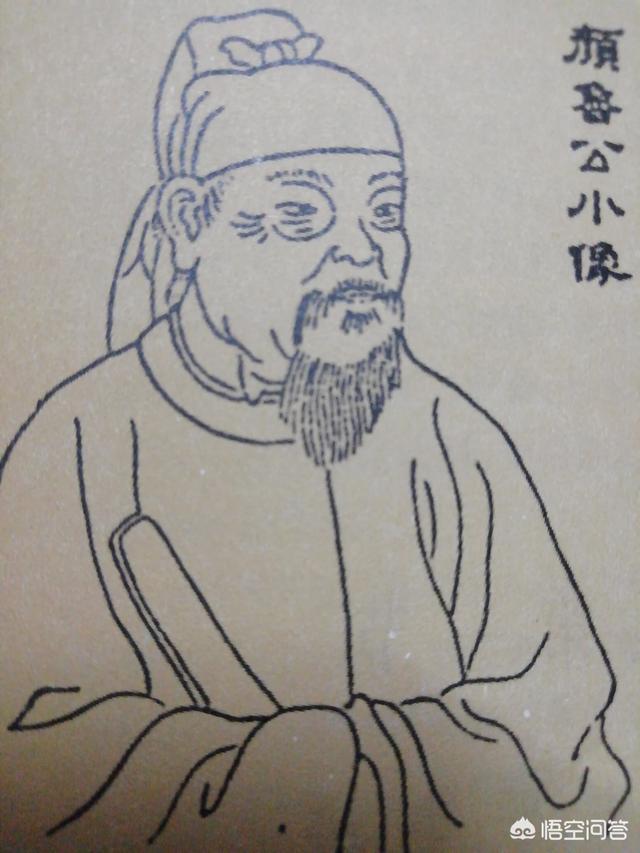 顏魯公小像
悟空问答